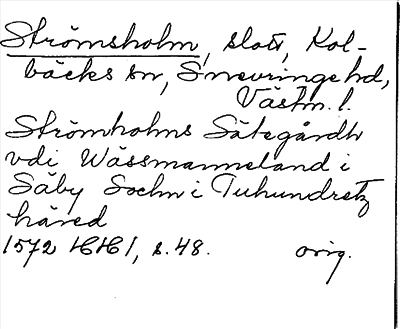 Strömsholm, slott, Kol-
bäcks sn, Snevringe hd,
Västm. l.
Strömholms Sätegårdh
vdi Wässmanneland i
Säby Sochn i Tuhundretz
häred
1572 HH 1, s. 48. orig.